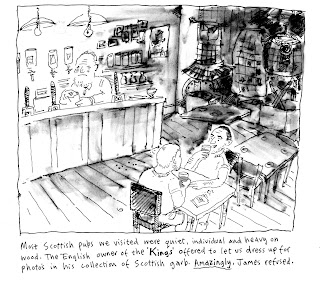 Most Scottish pubs we visited were quiet, individual and heavy on
wood. The English owner of the 'Kings' offered to let us dress up for
photos in his collection of Scottish garb. Amazingly, James refused.